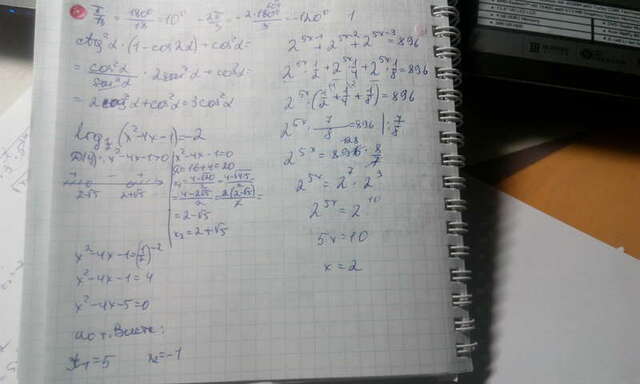 π/18 = 180°/18 = 10° -2π/3 = -2·180°/3 = -120°
ctg²α·(1-cos2α)+cos²α=
= cos²α/sin²α · 2sin²α+cos²α=
= 2cos²α+cos²α=3cos²α
log½(x²-4x-1)=-2
x²-4x-1>0
x²-4x-1=0
D=16+4=20
2-√5 2+√5
= 2-√5
x₂=2+√5
x²-4x-1=(½)⁻²
x²-4x-1=4
x²-4x-5=0
x₁=5 x₂=-1
2^(5x-1)+2^(5x-2)+2^(5x-3)=896
2^(5x)·1/2+2^(5x)·1/4+2^(5x)·1/8=896
2^(5x)·(1/2+1/4+1/8)=896
2^(5x)·7/8=896 |:7/8
2^(5x)=896·8/7
2^(5x)=2⁷·2³
2^(5x)=2^10
5x=10
x=2